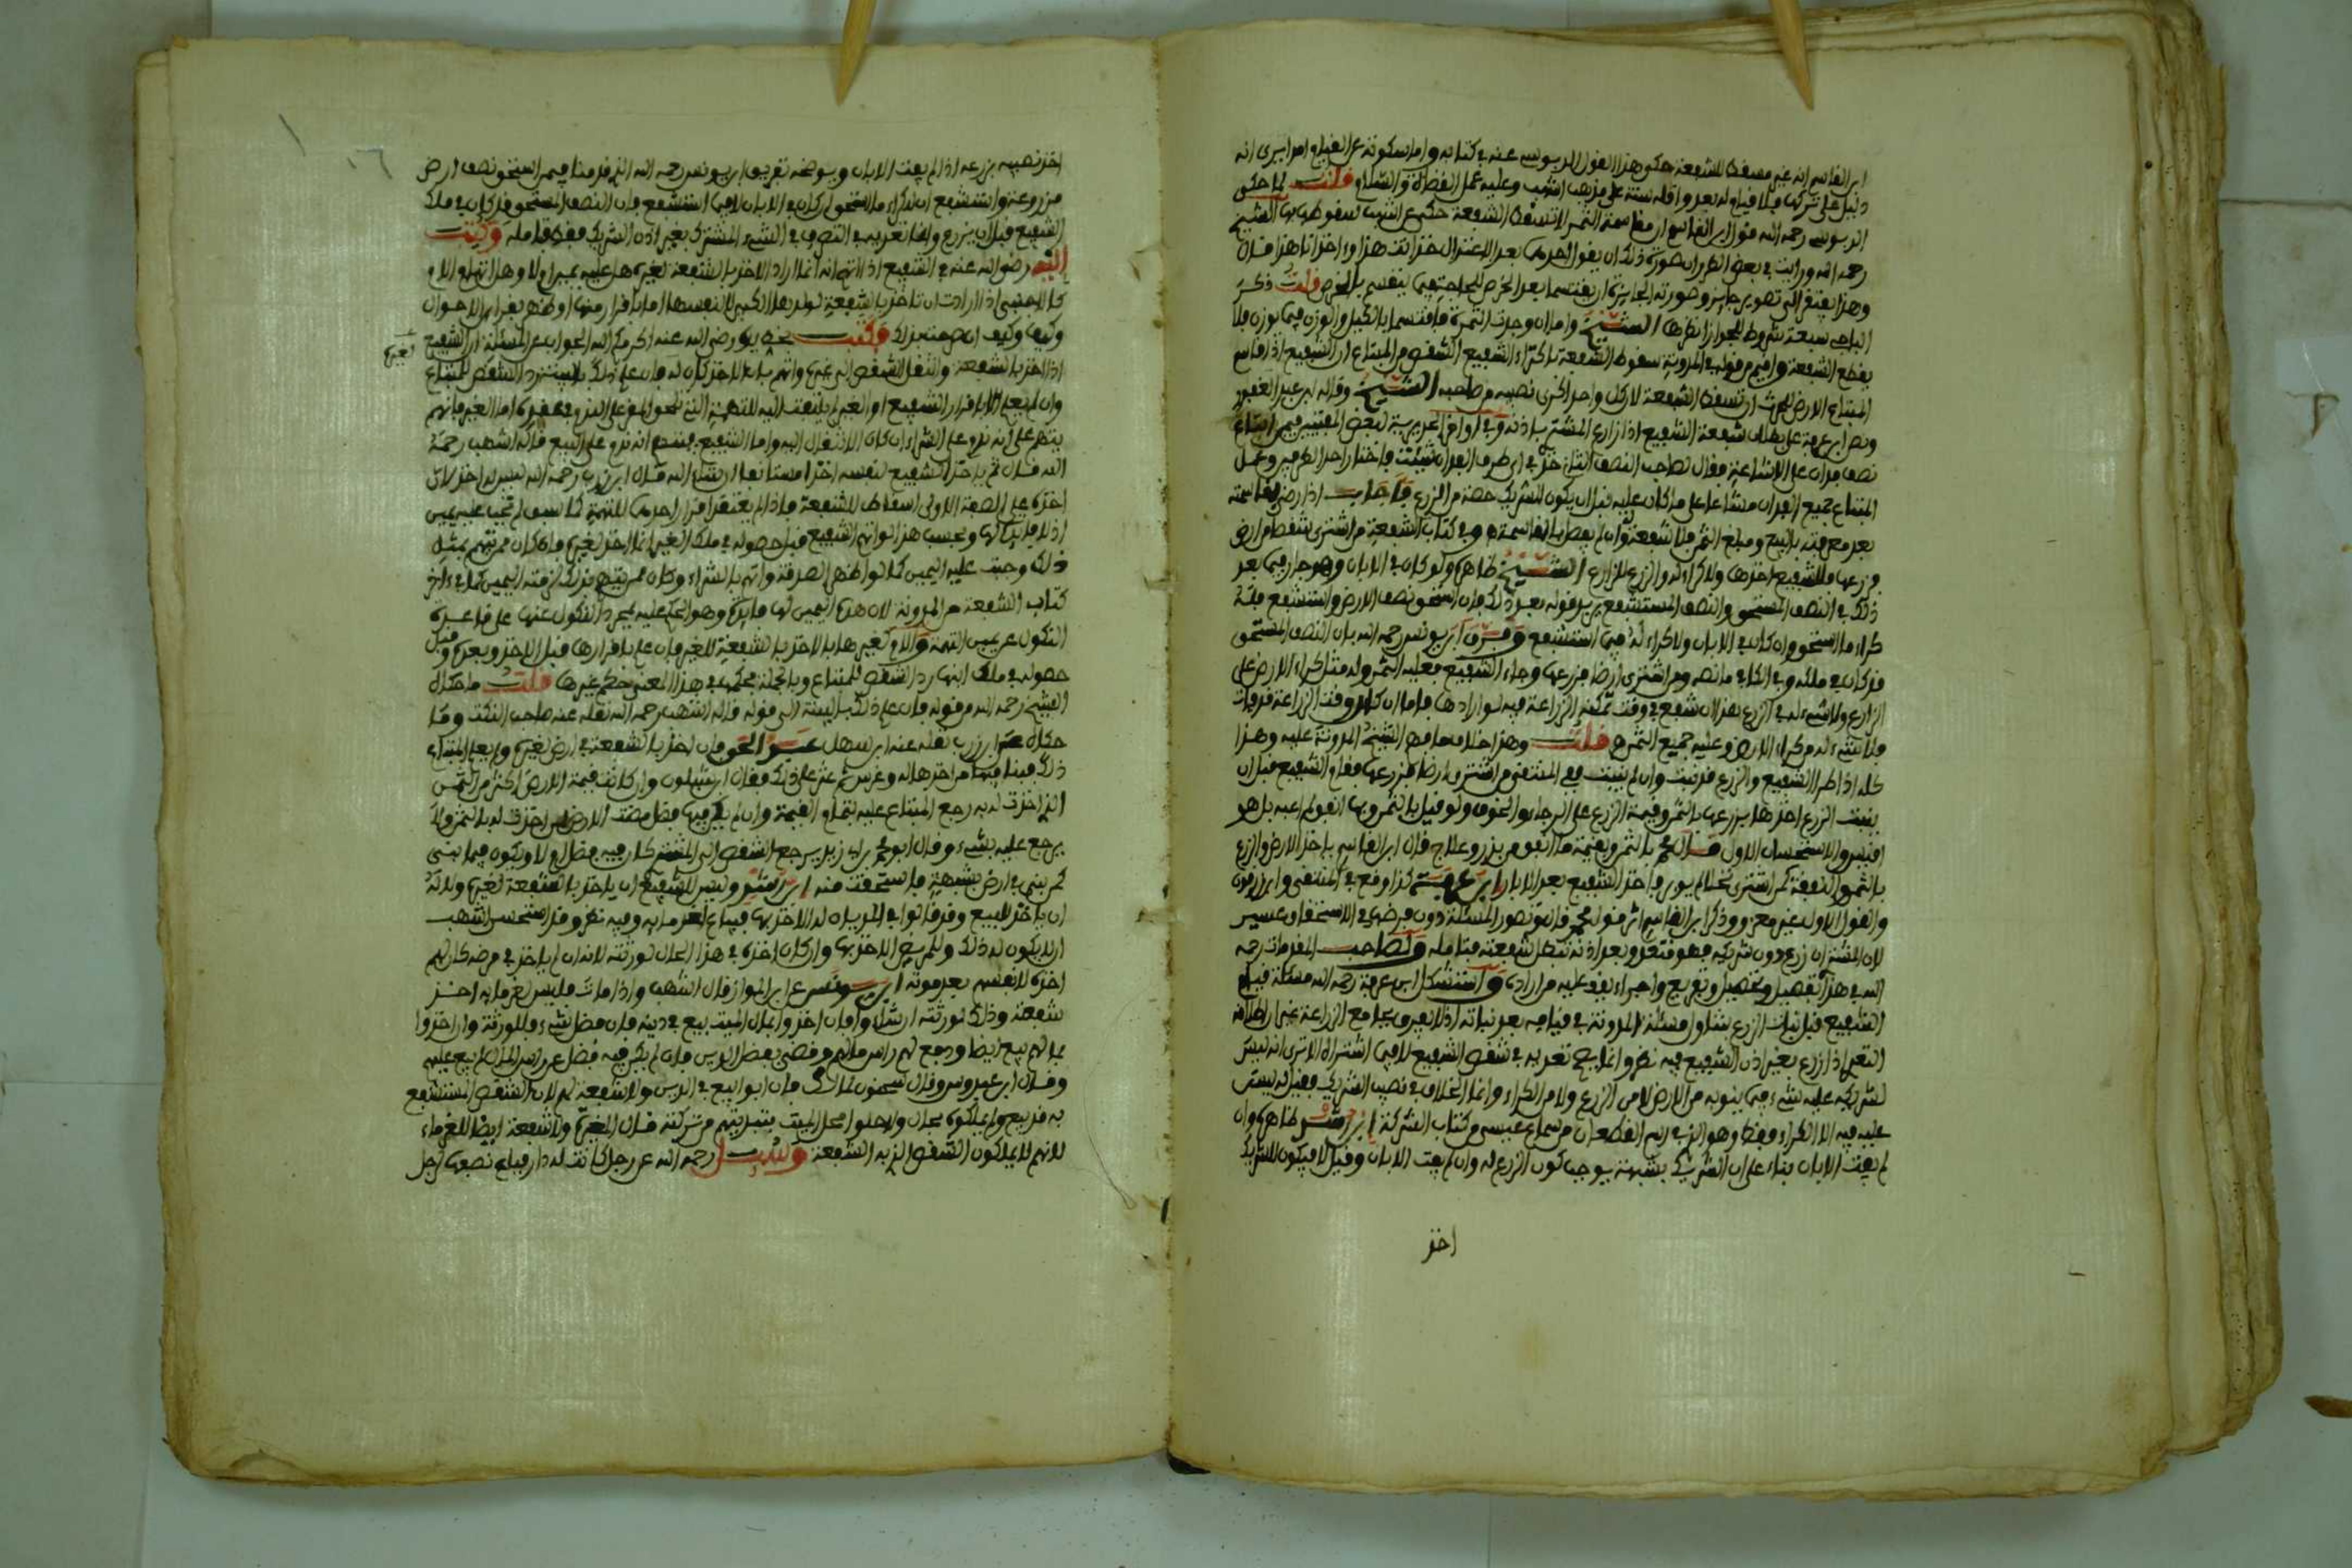 ابن القاسم انه غير مسقط للشفعة حكى هذا القول البربوسي عنه في كتابه واما سكوته عن القيام امدا يرى انه
دليل على تركها فلا قيام له بعد واقله سنة على مذهب اشهب وعليه عمل القضاة والسلام قلت لما حكى
البربوسي رحمه الله قول ابن القاسم ان مقاسمة الثمر لا تسقط الشفعة حكى عن اشهب سقوطها بها الشيخ
رحمه الله ورايت في بعض الطرر ان صورة ذلك ان يقول احدهما بعد الاعتدال خذ انت هذا وءاخذ انا هذا قال
وهذا يفتقر الى تصوير جايز وصورته الجايزة ان يقتسما بعد الخرص للحاجتهما ينقسم بالخرص قلت ذكر
الباجي سبعة شروط للجواز انظرها الشيخ واما ان وجدت الثمرة فاقتسما بالكيل والوزن فيما يوزن فلا
يقطع الشفعة واقيم من قوله في المدونة سقوط الشفعة باكتراء الشفيع الشقص من المبتاع ان الشفيع اذا قاسم
المبتاع الارض للحرث ان تسقط الشفعة لان كل واحد اكرى نصيبه من صاحبه الشيخ وقاله ابن عبد الغفور
ونص ابن عرفة على بطلان شفعة الشفيع اذا زارع المشتري باذنه وفي اواخر اجوبة لبعض المفتيين فيمن ابتاع
نصف فدان على الاشاعة فقال لصاحب النصف الثاني خذ في اي طرف الفدان شئت فاخذ احد الطرفين وعمل
المبتاع جميع الفدان مشاعا على ما كان عليه قبل ان يكون للشريك حصة من الزرع فاجاب اذا رضي بقاسمته
بعد معرفته بالبيع ومبلغ الثمن فلا شفعة وان لم يفصل بالمقاسمة وفي كتاب الشفعة من اشترى شقصا من ارض
فزرعها فللشفيع اخذها ولا كراء له والزرع للزارع الشيخ ظاهره ولو كان في الابان وهو جار فيما بعد
ذلك في النصف المستحق والنصف المستشفع يريد قوله بعد ذلك فان استحق نصف الارض واستشفع فله
كراء ما استحق ان كان في الابان ولا كراء له فيما استشفع وفرق ابن يونس رحمه الله بان النصف المستحق
قد كان في ملكه وفي الكافي ما نصه ومن اشترى ارضا فزرعها وجاء الشفيع فعليه الثمن وله مثل كراء الارض على
الزارع ولا شيء له في الزرع هذا ان شفع في وقت تمكنه الزراعة فيه لو ارادها فاما ان كان وقت الزراعة قد فات
فلا شيء له من كراء الارض وعليه جميع الثمن قلت وهذا خلاف ما فهم الشيخ المدونة عليه وهذا
كله اذا طرا الشفيع والزرع قد نبت وان لم ينبت ففي المنتقى من اشترى ارضا فزرعها فقام الشفيع قبل ان
ينبت الزرع اخذها بزرعها بالثمن وقيمة الزرع على الرجاء والخوف ولو قيل بالثمن وبما انفق لم اعبه بل هو
اقيس والاستحسان الاول قال محمد بالثمن وبقيمة ما انفق من بذر وعلاج قال ابن القاسم ياخذ الارض والزرع
بالثمن والنفقة كمن اشترى نخلا لم يوبر فياخذ الشفيع بعد الابار ابن عرفة كذا وقع في المنتقى وابن زرقون
والقول الاول غير معزو وذكر ابن القاسم اثر قول محمد قال هو تصور المسئلة دون فرضها في الاستحقاق عسير
لان المشتري ان زرع دون شريكه فهو متعد وبعد اذنه تبطل شفعته فتامله ولصاحب المقدمات رحمه
الله في هذا تفصيل وتحصيل وتفريع واجراء يقف عليه من اراده واستشكل ابن عرفة رحمه الله مسئلة قيام
الشفيع قبل نبات الزرع بتناول مسئلة المدونة في قيامه بعد نباته اذ لا يعرى بها مع الزراعة غير اطلاقه
التعدي اذا زرع بغير اذن الشفيع فيه نظر وانما يصح تعديه في شقص الشفيع لا فيما اشتراه الا ترى انه ليس
لشريكه عليه شيء فيما ينوبه من الارض لا من الزرع ولا من الكراء وانما الخلاف في نصيب الشريك فقيل له ليس
عليه فيه الا الكراء فقط وهو الذي في رسم القطعان من سماع عيسى من كتاب الشركة ابن رشد ظاهره وان
لم يفت الابان بناء على ان الشريك بشبهة يوجب كون الزرع له وان لم يفت الابان وقيل لا فيكون للشريك
اخذ
اخذ نصيبه بزرعه اذا لم يفت الابان ويوضحه تفريق ابن يونس رحمه الله الذي قدمنا فيمن استحق نصف ارض
مزروعة واستشفع ان له كراء ما استحق ان كان في الابان لا فيما استشفع فان النصف المستحق قد كان في ملك
الشفيع قبل ان يزرع وانما تعديه في التصرف في الشيء المشترك بغير اذن الشريك فقط فتامله وكتبت
اليه رضي الله عنه في الشفيع اذا اتهم انه انما اراد الاخذ بالشفعة لغيره هل عليه يمين ام لا وهل اتهام الام
كالاجنبي اذا ارادت ان تاخذ بالشفعة لولدها الكبير لا لنفسها اما باقرار منها او ظهر بقرائن الاحوال
وكيف وكيف ان صمتت بذلك فكتب بخط يده رضي الله عنه اكرمكم الله الجواب عن المسئلة ان الشفيع لغيره
اذا اخذ بالشفعة وانتقل الشقص الى غيره واتهم بان الاخذ كان له فان علم ذلك بالبينة رد الشقص للمبتاع
وان لم يعلم الا باقرار الشفيع او الغير لم يلتفت اليه للتهمة
الله قال ثم ياخذ الشفيع لنفسه اخذا مستانفا ان شاء الله قال ابن زرب رحمه الله ليس له اخذ لان
اخذه على الصفة الاولى اسقاط للشفعة فاذا لم يعتقر اقرار احدهما للتهمة كما سبق لم تجب عليه يمين
اذ لا فايدة لها وبحسب هذا لو اتهم الشفيع قبل حصوله في ملك الغير انما اخذ لغيره فان كان ممن يتهم بمثل
ذلك وجبت عليه اليمين
كتاب الشفعة من المدونة لان هذه اليمين لها فايدة وهو الحكم عليه بمجرد النكول عنها على قاعدة
النكول عن يمين التهمة والام كغيرها بالاخذ بالشفعة للغير فان علم باقرارها قبل الاخذ وبعده وقبل
حصوله في ملك ابنها رد الشقص للمبتاع وبالجملة فحكمها في هذا المعنى حكم غيرها قلت ما حكاه
الشيخ رحمه الله من قوله فان علم ذلك بالبينة الى قوله قاله اشهب رحمه الله نقله عنه صاحب النكت وما
حكاه عن ابن زرب نقله عنه ابن سهل عبد الحق فان اخذ بالشفعة في ارض لغيره ولم يعلم المبتاع
ذلك فبنا فيها من اخذها له وغرس ثم عثر على ذلك فقال ان شيلون وان كانت قيمة الارض اكثر من الثمن
الذي اخذت له به رجع المبتاع عليه بتمام القيمة وان لم يكن فيها فضل مضت الارض لمن اخذت له بالثمن ولا
يرجع عليه بشيء وقال ابو محمد بن ابي زيد يرجع الشقص الى المشتري كان فيه فضل ام لا ويكون فيما بنى
كمن بنى في ارض بشبهة فاستحقت منه ابن رشد وليس للشفيع ان ياخذ بالشفعة لغيره ولا له
ان ياخذ للبيع وقد قالوا في المديان له الاخذ بها فيباع لغرمايه وفيه نظر وقد استحسن اشهب
ان لا يكون له ذلك وللمريض الاخذ بها وان كان اخذه في هذا الحال لورثته لانه ان لم ياخذ في مرضه كان لهم
اخذه لانفسهم بعد موته ابن يونس عن ابن المواز قال اشهب واذا مات فليس لغرمايه اخذ
شفعته وذلك لورثته ان شاءوا فان اخذوا بمال الميت بيع في دينه فان فضل شيء فللورثة وان اخذوا
بمالهم بيع ايضا ودفع لهم راس مالهم وقضى بفضل الدين فان لم يكن فيه فضل عن راس المال لم يبع عليهم
وقال ابن عبدوس وقال سحنون لمالك فان ابوا بيع في الدين ولا شفعة لهم لان الشقص المستشفع
به قد بيع ولم يملكوه بحال ولا حلوا محل الميت بتبديتهم من شركته قال المغيرة ولا شفعة ايضا للغرماء
لانهم لا يملكون الشقص الذي به الشفعة وسئل رحمه الله عن رجل كانت له دار فباع نصفها لرجل